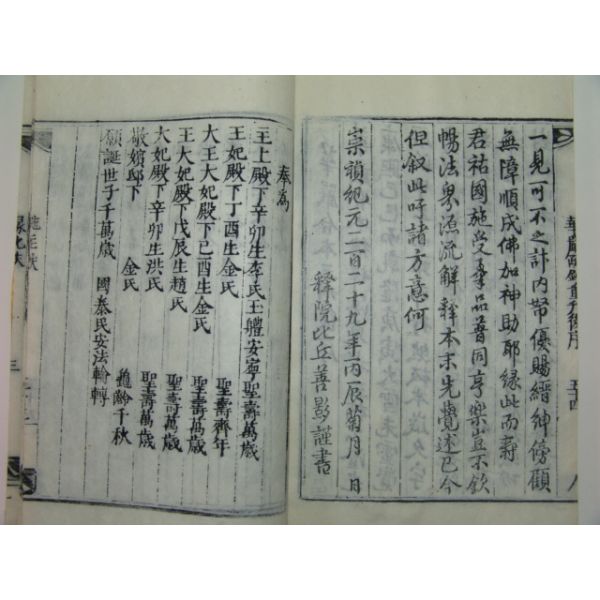 一見可不之計內帑優賜縉紳傍顧
無障順成佛加神助耶緣此而壽
君祐國施受羣品普同亨樂豈不欽
暢法界源流解釋本末先覺述已今
但叙此呼諸方意何
崇禎紀元二百二十九年丙辰菊月 日
釋院比丘善影謹書
奉為
主上殿下辛卯生李氏玉軆安寧聖壽萬歲
王妃殿下丁酉生金氏 聖壽齊年
大王大妃殿下己酉生金氏 聖壽萬歲
王大妃殿下戊辰生趙氏 聖壽萬歲
大妃殿下辛卯生洪氏 聖壽萬歲
敬嬪邸下 金氏 龜齡千秋
願誕世子千萬歲 國泰民安法輪轉
施主秩